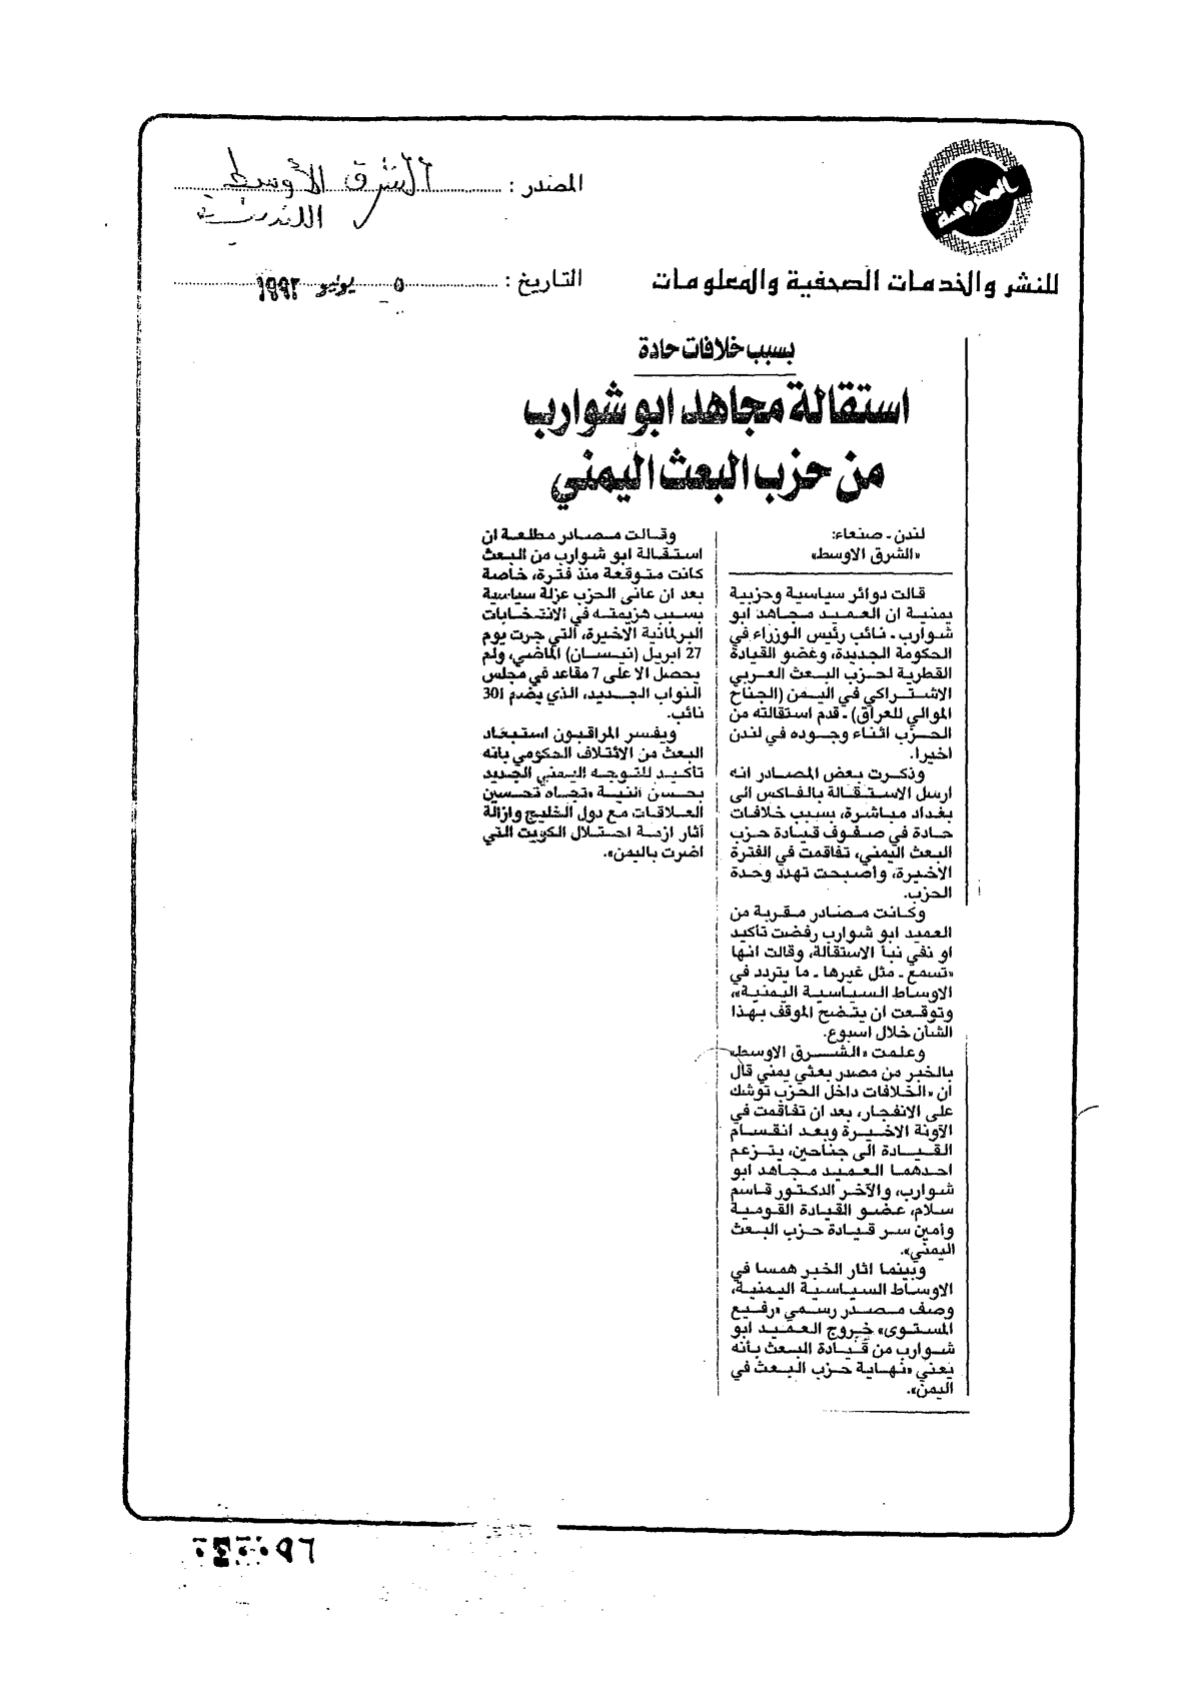 المحروسة
للنشر والخدمات الصحفية والمعلومات
المصدر : الشرق الأوسط
اللندنية
التاريخ : ٥ يونيو ١٩٩٣
بسبب خلافات حادة
استقالة مجاهد ابو شوارب
من حزب البعث اليمني
لندن ـ صنعاء:
«الشرق الاوسط»
قالت دوائر سياسية وحزبية
يمنية ان العميد مجاهد ابو
شوارب ـ نائب رئيس الوزراء في
الحكومة الجديدة، وعضو القيادة
القطرية لحزب البعث العربي
الاشتراكي في اليمن (الجناح
الموالي للعراق) ـ قدم استقالته من
الحزب اثناء وجوده في لندن
اخيرا.
وذكرت بعض المصادر انه
ارسل الاستقالة بالفاكس الى
بغداد مباشرة، بسبب خلافات
حادة في صفوف قيادة حزب
البعث اليمني، تفاقمت في الفترة
الاخيرة، واصبحت تهدد وحدة
الحزب.
وكانت مصادر مقربة من
العميد ابو شوارب رفضت تأكيد
او نفي نبأ الاستقالة، وقالت انها
«تسمع ـ مثل غيرها ـ ما يتردد في
الاوساط السياسية اليمنية»،
وتوقعت ان يتضح الموقف بهذا
الشأن خلال اسبوع.
وعلمت «الشرق الاوسط»
بالخبر من مصدر بعثي يمني قال
ان «الخلافات داخل الحزب توشك
على الانفجار، بعد ان تفاقمت في
الآونة الاخيرة وبعد انقسام
القيادة الى جناحين، يتزعم
احدهما العميد مجاهد ابو
شوارب، والآخر الدكتور قاسم
سلام، عضو القيادة القومية
وأمين سر قيادة حزب البعث
اليمني».
وبينما اثار الخبر همسا في
الاوساط السياسية اليمنية،
وصف مصدر رسمي «رفيع
المستوى» خروج العميد ابو
شوارب من قيادة البعث بأنه
يعني «نهاية حزب البعث في
اليمن».
وقالت مصادر مطلعة ان
استقالة ابو شوارب من البعث
كانت متوقعة منذ فترة، خاصة
بعد ان عانى الحزب عزلة سياسية
بسبب هزيمته في الانتخابات
البرلمانية الاخيرة، التي جرت يوم
27 ابريل (نيسان) الماضي، ولم
يحصل الا على 7 مقاعد في مجلس
النواب الجديد، الذي يضم 301
نائب.
ويفسر المراقبون استبعاد
البعث من الائتلاف الحكومي بانه
تأكيد للتوجه اليمني الجديد
بحسن النية «تجاه تحسين
العلاقات مع دول الخليج وازالة
آثار ازمة احتلال الكويت التي
اضرت باليمن».